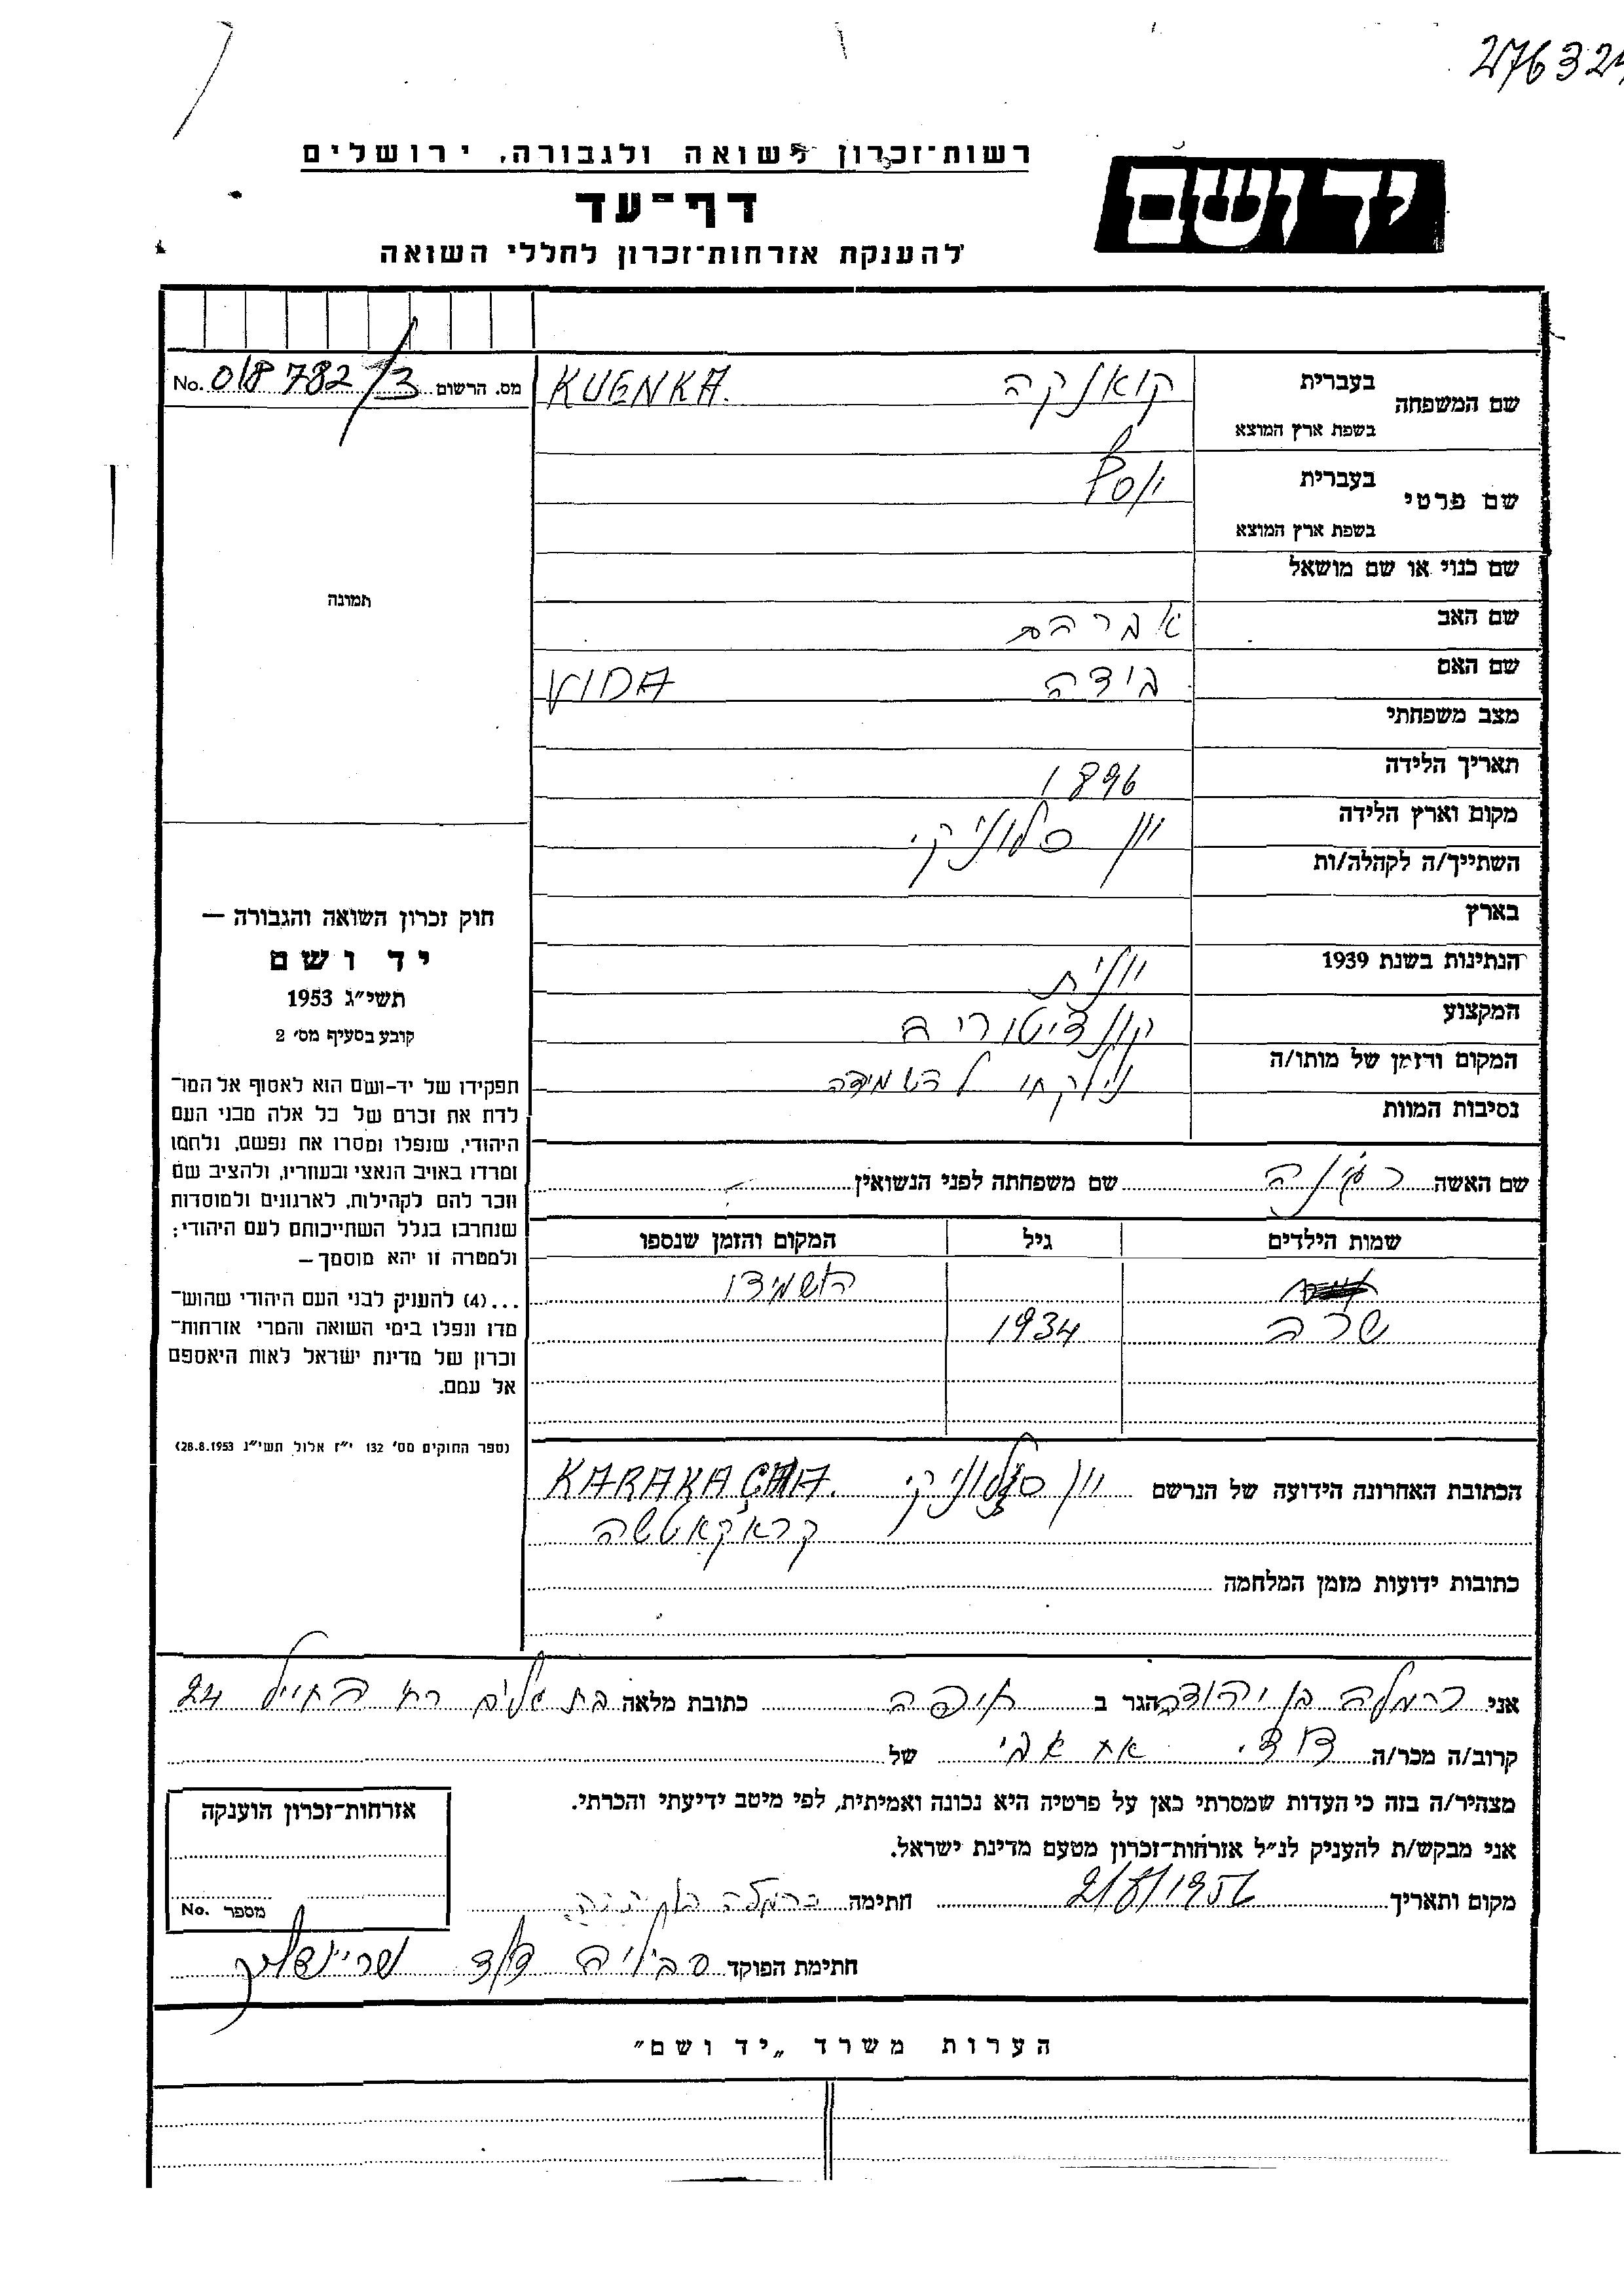 276324
רשות־זכרון לשואה ולגבורה, ירושלים
יד ושם
דף־עד
להענקת אזרחות־זכרון לחללי השואה
שם המשפחה בעברית קואנקה KUENKA.
בשפת ארץ המוצא
מס. הרשום 018782/3 No.
שם פרטי בעברית יוסף
בשפת ארץ המוצא
שם כנוי או שם מושאל
תמונה
שם האב אברהם
שם האם וידה VIDA
מצב משפחתי
תאריך הלידה 1896
מקום וארץ הלידה יון סלוניקי
השתייך/ה לקהלה/ות
בארץ
הנתינות בשנת 1939 יונית
המקצוע קונדיטוריה
המקום והזמן של מותו/ה נילקחו להשמידה
נסיבות המוות
חוק זכרון השואה והגבורה —
יד ושם
תשי״ג 1953
קובע בסעיף מס׳ 2
תפקידו של יד-ושם הוא לאסוף אל המו־
לדת את זכרם של כל אלה מבני העם
היהודי, שנפלו ומסרו את נפשם, נלחמו
ומרדו באויב הנאצי ובעוזריו, ולהציב שם
וזכר להם לקהילות, לארגונים ולמוסדות
שנחרבו בגלל השתייכותם לעם היהודי;
ולמטרה זו יהא מוסמך —
...(4) להעניק לבני העם היהודי שהוש־
מדו ונפלו בימי השואה והמרי אזרחות־
זכרון של מדינת ישראל לאות היאספם
אל עמם.
(ספר החוקים מס׳ 132 י״ז אלול תשי״ג 28.8.1953)
שם האשה שם משפחתה לפני הנשואין
שמות הילדים גיל המקום והזמן שנספו
השמידו
שרה 1934
הכתובת האחרונה הידועה של הנרשם יון סלוניקי KARAKACHA.
קראקאטשה
כתובות ידועות מזמן המלחמה
אני כרמלה בן יהודה הגר ב חיפה כתובת מלאה בת גלים רח החייל 24
קרוב/ה מכר/ה דודי. אח אבי של
מצהיר/ה בזה כי העדות שמסרתי כאן על פרטיה היא נכונה ואמיתית, לפי מיטב ידיעתי והכרתי.
אני מבקש/ת להעניק לנ״ל אזרחות־זכרון מטעם מדינת ישראל.
מקום ותאריך 2/8/1956 חתימה כרמלה בן יהודה
חתימת הפוקד
אזרחות־זכרון הוענקה
מספר No.
הערות משרד „יד ושם״